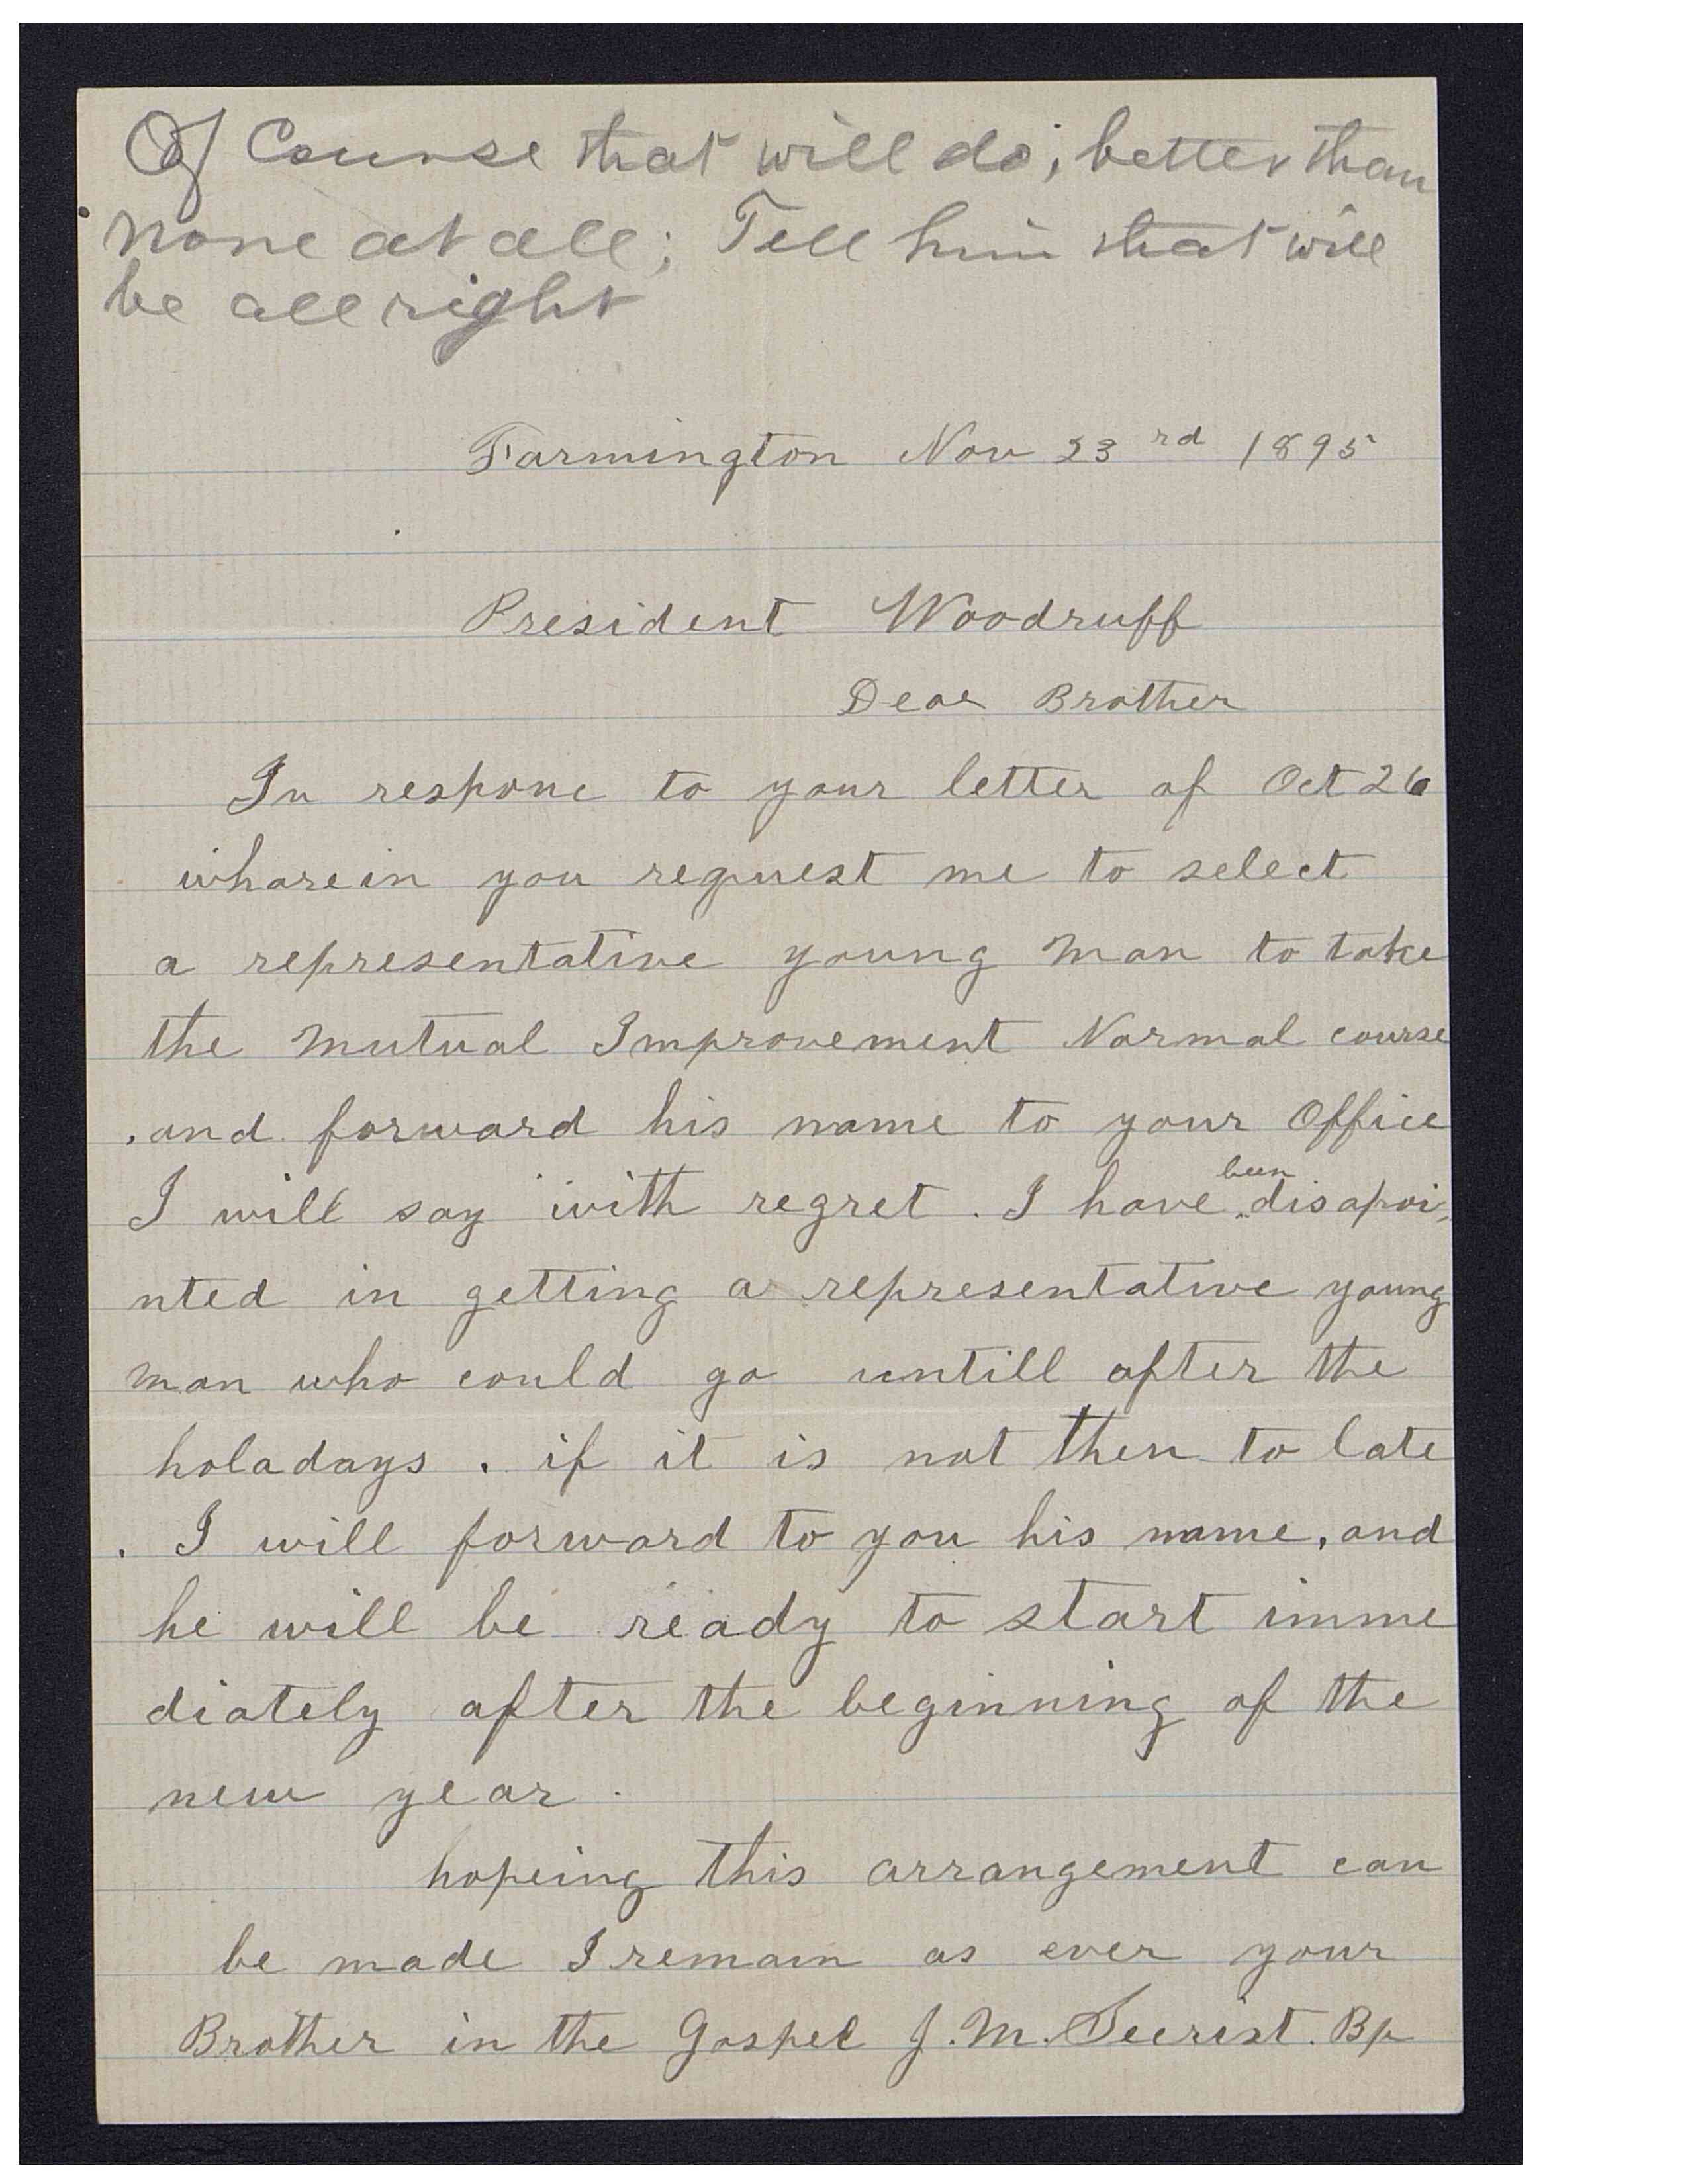 Of Course that will do; better than
none at all; Tell him that will
be all right
Farmington Nov 23rd 1895
President Woodruff
Dear Brother
In respone to your letter of Oct 26
wharein you request me to select
a representative young man to take
the Mutual Improvement Normal course
, and forward his name to your Office
I will say with regret. I have been disapoi,
nted in getting a representative young
man who could go untill after the
holadays . if it is not then to late
. I will forward to you his name, and
he will be ready to start imme
diately after the beginning of the
new year.
hopeing this arrangement can
be made I remain as ever your
Brother in the Gospel J. M. Secrist. Bp